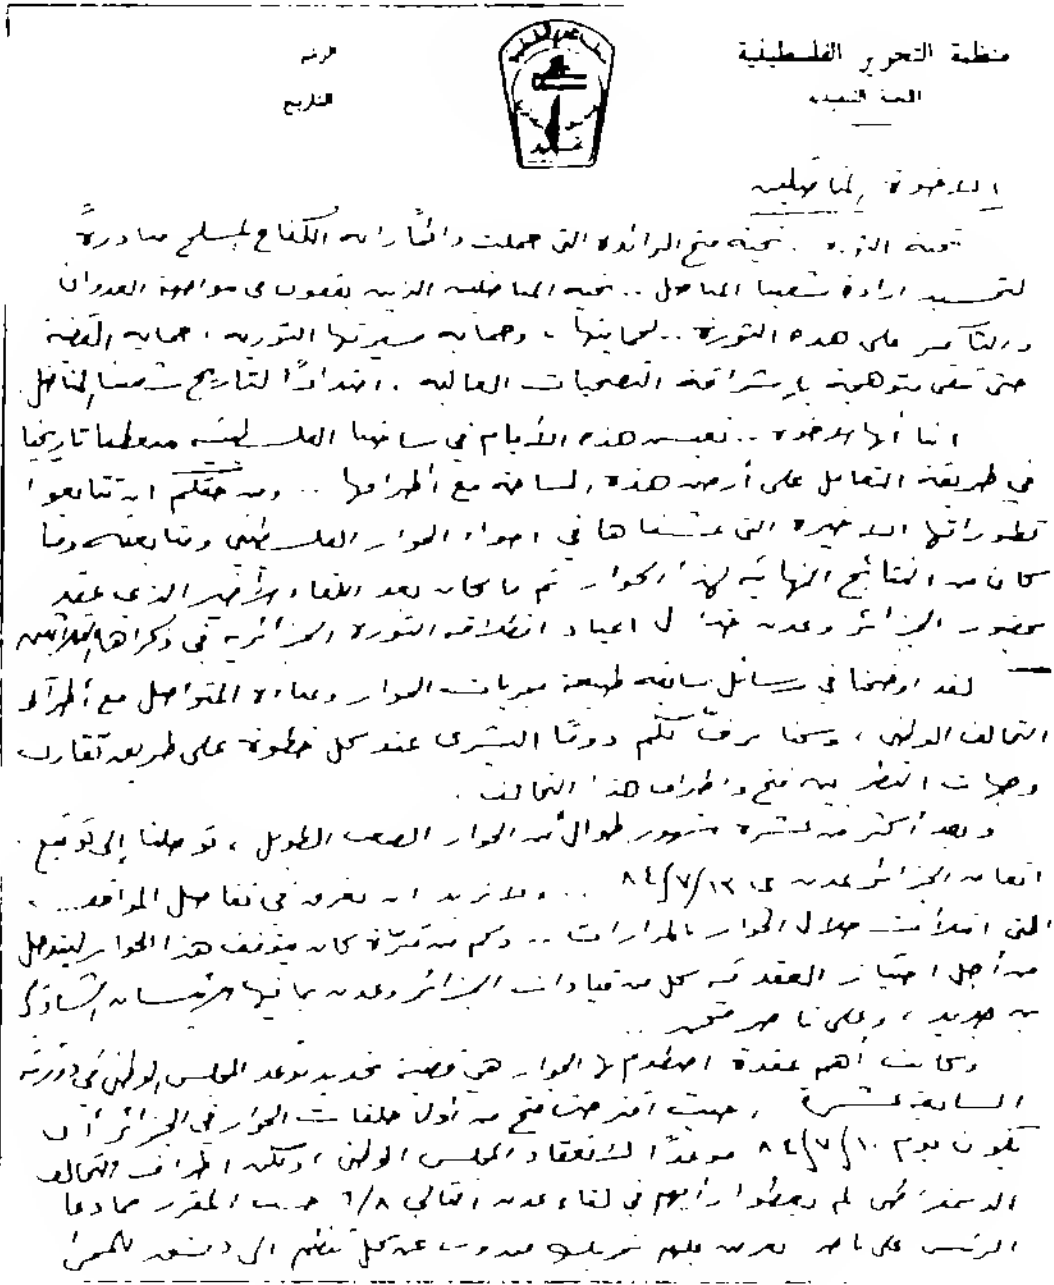 منظمة التحرير الفلسطينية
الرقم
التاريخ
الاخوة المناضلين
تحية الثورة . تحية فتح الرائدة التي حملت دائمًا راية الكفاح المسلح مبادرةً
لتجسيد ارادة شعبنا المناضل .. تحية المناضلين الذين يقفون في مواجهة العدوان
والتآمر على هذه الثورة .. لحمايتها ، وحماية مسيرتها الثورية ، حماية القضية
حتى تبقى متوهجة بإشراقة التضحيات الغالية . امتدادًا لتاريخ شعبنا المناضل .
اننا أيها الاخوة .. نعيش هذه الأيام في ساحتنا الفلسطينية منعطفا تاريخيا
في طريقة التعامل على أرض هذه الساحة مع أطرافها .. ومن حقكم ان تتابعوا
تطوراتها الاخيرة التي عشناها في اجواء الحوار الفلسطيني ومتابعته وما
كان من النتائج النهائية لهذا الحوار ثم ما كان بعد اللقاء الأخير الذي عقد
بحضور الجزائر وعدن خلال اعياد انطلاقة الثورة الجزائرية في ذكراها الثلاثين
لقد اوضحنا في رسائل سابقة طبيعة مجريات الحوار وعناءه المتواصل مع أطراف
التحالف الوطني ، وكنا نزف لكم دومًا البشرى عند كل خطوة على طريق تقارب
وجهات النظر بين فتح واطراف هذا التحالف .
وبعد أكثر من عشرة شهور طوال من الحوار الصعب الطويل ، توصلنا إلى توقيع
اتفاق الجزائر عدن في ٨٤/٧/١٣ .. ولا نريد ان نغرق في تفاصيل المواقف ..
التي امتلأت خلال الحوار بالمرارات .. وكم من مرّة كان يتوقف هذا الحوار ليتدخل
من أجل اجتياز العقد فيه كل من قيادات الجزائر وعدن بما فيها الرئيسان الشاذلي
بن جديد ، وعلي ناصر محمد ..
وكانت أهم عقدة اصطدم بها الحوار هي قضية تحديد موعد المجلس الوطني في دورته
السابعة عشرة ، حيث اقترحت فتح من أول حلقات الحوار في الجزائر أن
يكون يوم ٨٤/٧/١٠ موعدًا لانعقاد المجلس الوطني ، ولكن اطراف التحالف
الديمقراطي لم يعطوا رأيهم في لقاء عدن التالي ٦/٨ حسب المقرر مما دعا
الرئيس علي ناصر يعرض عليهم مندوب عن كل تنظيم الى دمشق